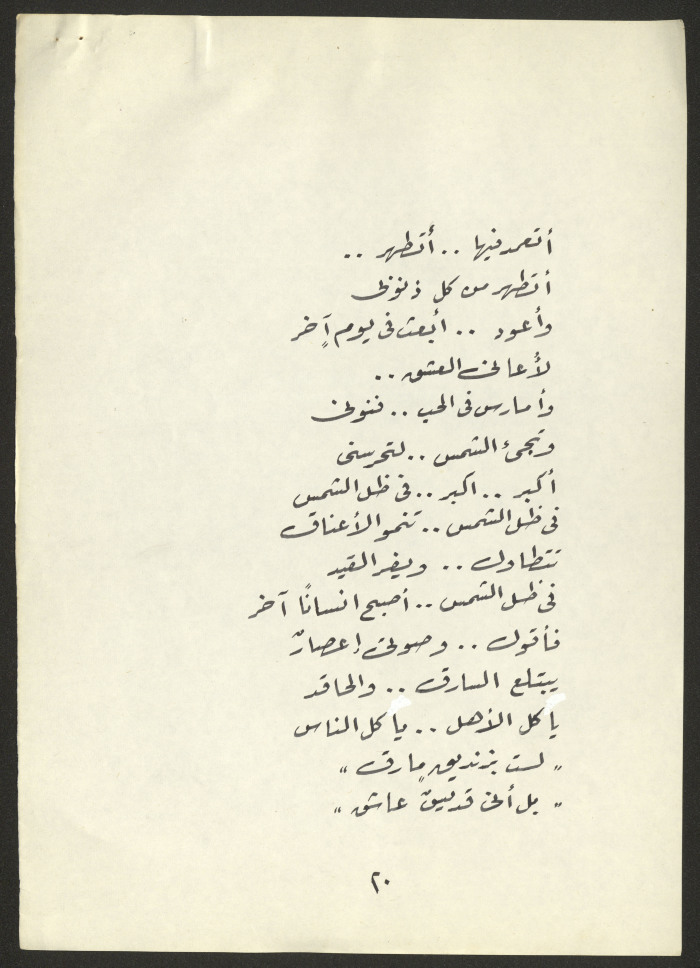 أتعمد فيها .. أتطهر ..
أتطهر من كل ذنوبى
وأعود .. أبعث فى يوم آخر
لأعانى العشق ..
وأمارس فى الحب .. فنونى
وتجئ الشمس .. لتحرسنى
أكبر .. اكبر .. فى ظل الشمس
فى ظل الشمس .. تنمو الأعناق
تتطاول .. ويفر القيد
فى ظل الشمس .. أصبح انسانًا آخر
فأقول .. وصوتى إعصارٌ
يبتلع السارق .. والحاقد
يا كل الأهل .. يا كل الناس
" لست بزنديقٍ مارق "
" بل أنى قديسٌ عاشق "
٢٠